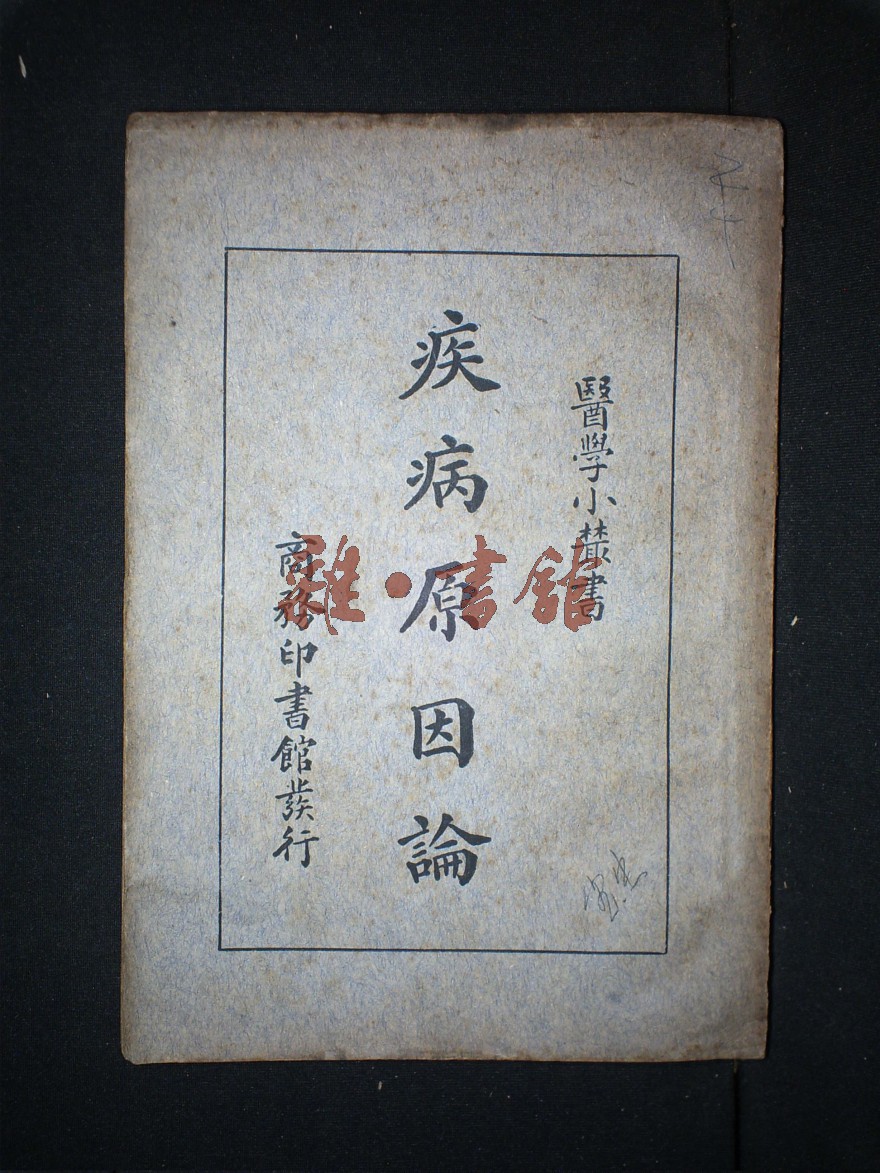 醫學小叢書
疾病原因論
商務印書館發行
雜·書館